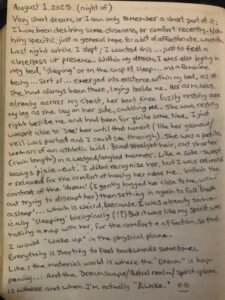 August 1 2025: (night of)
Very short dream, or I can only remember a short part of it;
I have been desiring some closeness, or comfort recently. Nothing
specific, just a small hope for a bit of affectionate warmth.
Last night while I slept; I wanted this... just to feel a
closeness of presence. Within my dream, I was also laying in
my bed, "sleeping" or on the cusp of sleep... and a feminine
being... sort of... emerged into existence within my bed, as if
she had always been there, laying beside me. Her arm was
already across my chest, her bent knee fazily resting over
my leg as she lay on her side, cuddling me. She was resting
right beside me and had been for quite some time. I just
wasn't able to "see" her until that moment (she had "ghost"/
veil was parted and I could see through). She was a petite
woman of an athletic build. Blond straight hair, cut shorter
(chin length) in a wedged/angled manner. Like a side-swept
bangs pixie-cut. I didn't recognize her, but I was relieved
& relaxed for the comfort of having her near me, within the
context of the "dream" (I gently hugged her close to me, with-
out trying to disrupt her) then settling in again to fall back
asleep"... which is weird because I was already technic-
ically "sleeping" biologically (!?) But it was like my spirit was
taking a nap with her, for the comfort & affection, so that
I would "wake up" in the physical plane.
Everything is starting to feel backwards sometimes.
Like; the material world is where the "Dream" is hap-
pening... and the Dreamscape/Astral realm/spirit-plane
is where and when I'm actually "Awake."